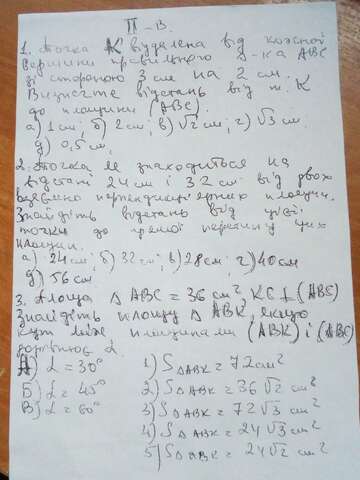 ІІ - В.
1. Точка К віддалена від кожної
вершини правильного Δ-ка ABC
зі стороною 3 см на 2 см.
Визначте відстань від т. К
до площини (ABC).
а) 1 см; б) 2 см; в) √2 см; г) √3 см.
д) 0,5 см.
2. Точка М знаходиться на
відстані 24 см і 32 см від двох
взаємно перпендикулярних площин.
Знайдіть відстань від цієї
точки до прямої перетину цих
площин.
а) 24 см; б) 32 см; в) 28 см; г) 40 см
д) 56 см
3. Площа Δ ABC = 36 см², KC ⊥ (ABC)
Знайдіть площу Δ ABK, якщо
кут між площинами (ABK) і (ABC)
дорівнює α.
А) α = 30°
Б) α = 45°
В) α = 60°
1) S Δ ABK = 72 см²
2) S Δ ABK = 36√2 см²
3) S Δ ABK = 72√3 см²
4) S Δ ABK = 24√3 см²
5) S Δ ABK = 24√2 см²